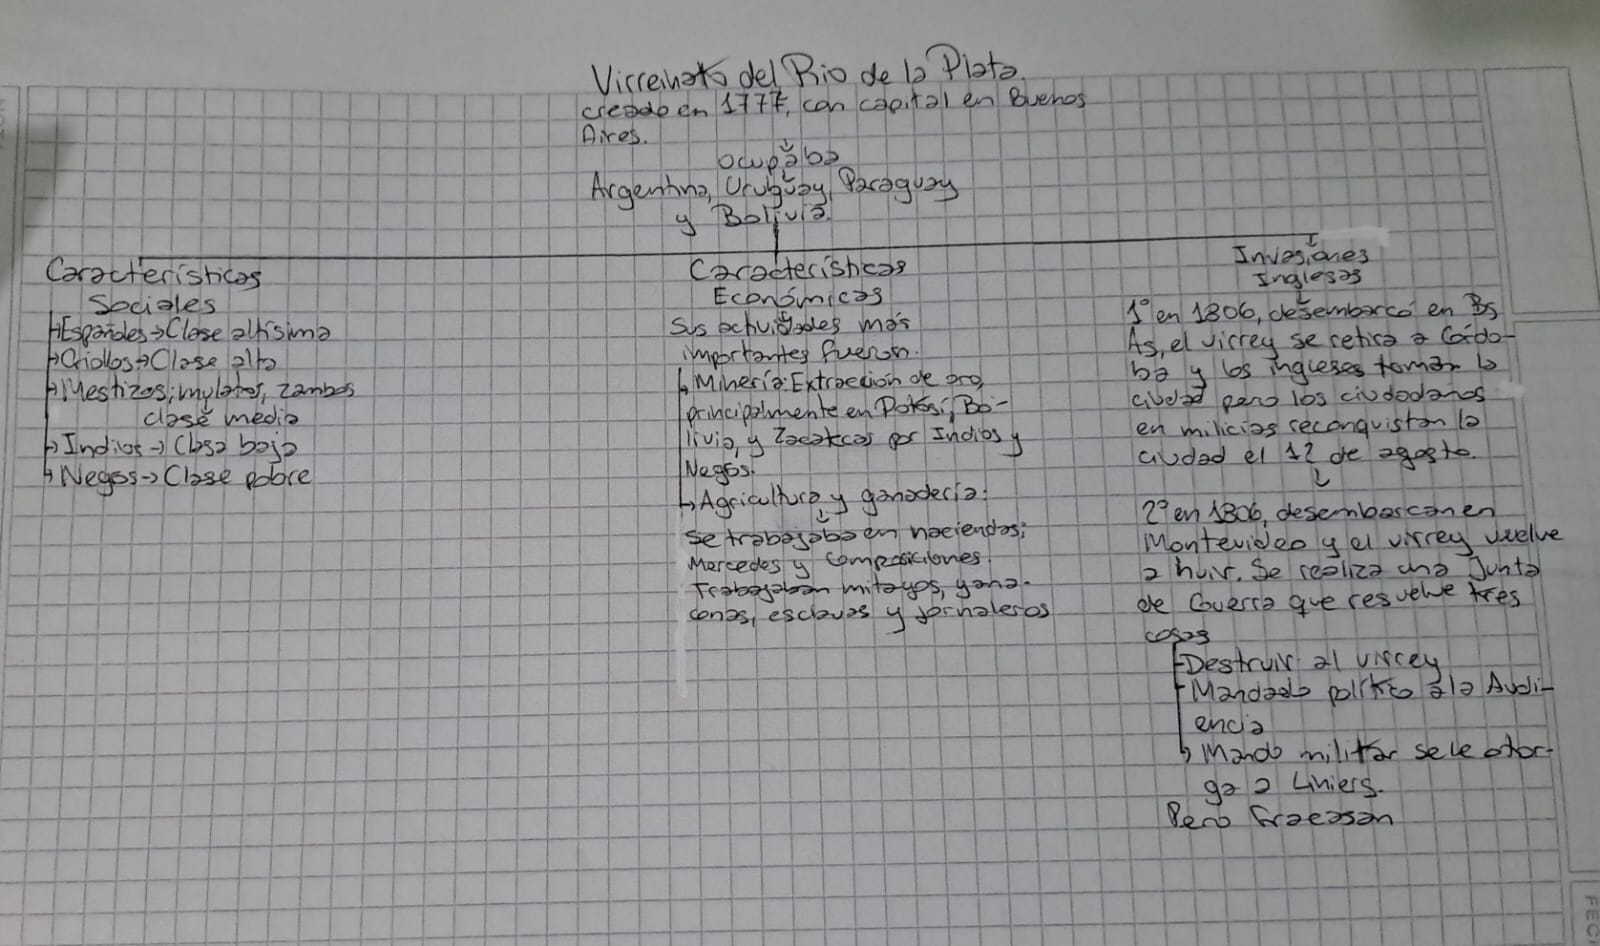 Virreinato del Rio de la Plata.
creado en 1777, con capital en Buenos
Aires.
ocupaba
Argentina, Uruguay, Paraguay
y Bolivia.
Características
Sociales
Españoles→Clase altísima
Criollos→Clase alta
Mestizos; mulatos, zambos
clase media
Indios→Clasa baja
Negos→Clase pobre
Características
Económicas
Sus actividades más
importantes fueron.
Minería: Extracción de oro,
principalmente en Potosí, Bo-
livia, y Zacatecas por Indios y
Negos.
Agricultura y ganadería:
Se trabajaba en haciendas;
Mercedes y composiciones.
Trabajaban mitayos, yana-
conas, esclavos y jornaleros
Invasiones
Inglesas
1° en 1806, desembarcó en Bs
As, el virrey se retira a Córdo-
ba y los ingleses toman la
ciudad pero los ciudadanos
en milicias reconquistan la
ciudad el 12 de agosto.
2° en 1806, desembarcan en
Montevideo y el virrey vuelve
a huir. Se realiza una Junta
de Guerra que resuelve tres
cosas
Destruir al virrey
Mandado político a la Audi-
encia
Mando militar se le otor-
ga a Liniers.
Pero fracasan